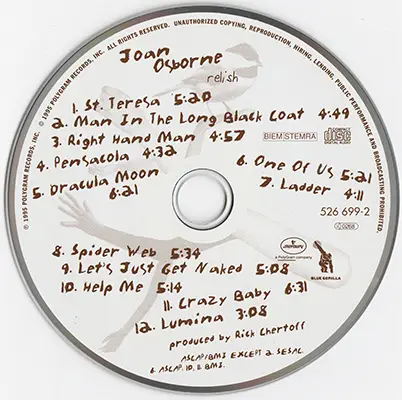 © 1995 POLYGRAM RECORDS, INC. ALL RIGHTS RESERVED. UNAUTHORIZED COPYING, REPRODUCTION, HIRING, LENDING, PUBLIC PERFORMANCE AND BROADCASTING PROHIBITED.
℗ 1995 POLYGRAM RECORDS, INC.
Joan
Osborne
relish
1. St. Teresa 5:20
2. Man In The Long Black Coat 4:49
3. Right Hand Man 4:57
BIEM/STEMRA
COMPACT
disc
DIGITAL AUDIO
4. Pensacola 4:32
5. Dracula Moon
6:21
6. One Of Us 5:21
7. Ladder 4:11
526 699-2
8. Spider Web 5:34
9. Let's Just Get Naked 5:08
10. Help Me 5:14
mercury
a PolyGram company
BLUE GORILLA
11. Crazy Baby 6:31
12. Lumina 3:08
produced by Rick Chertoff
ASCAP/BMI EXCEPT 2. SESAC.
6. ASCAP. 10, 11. BMI.